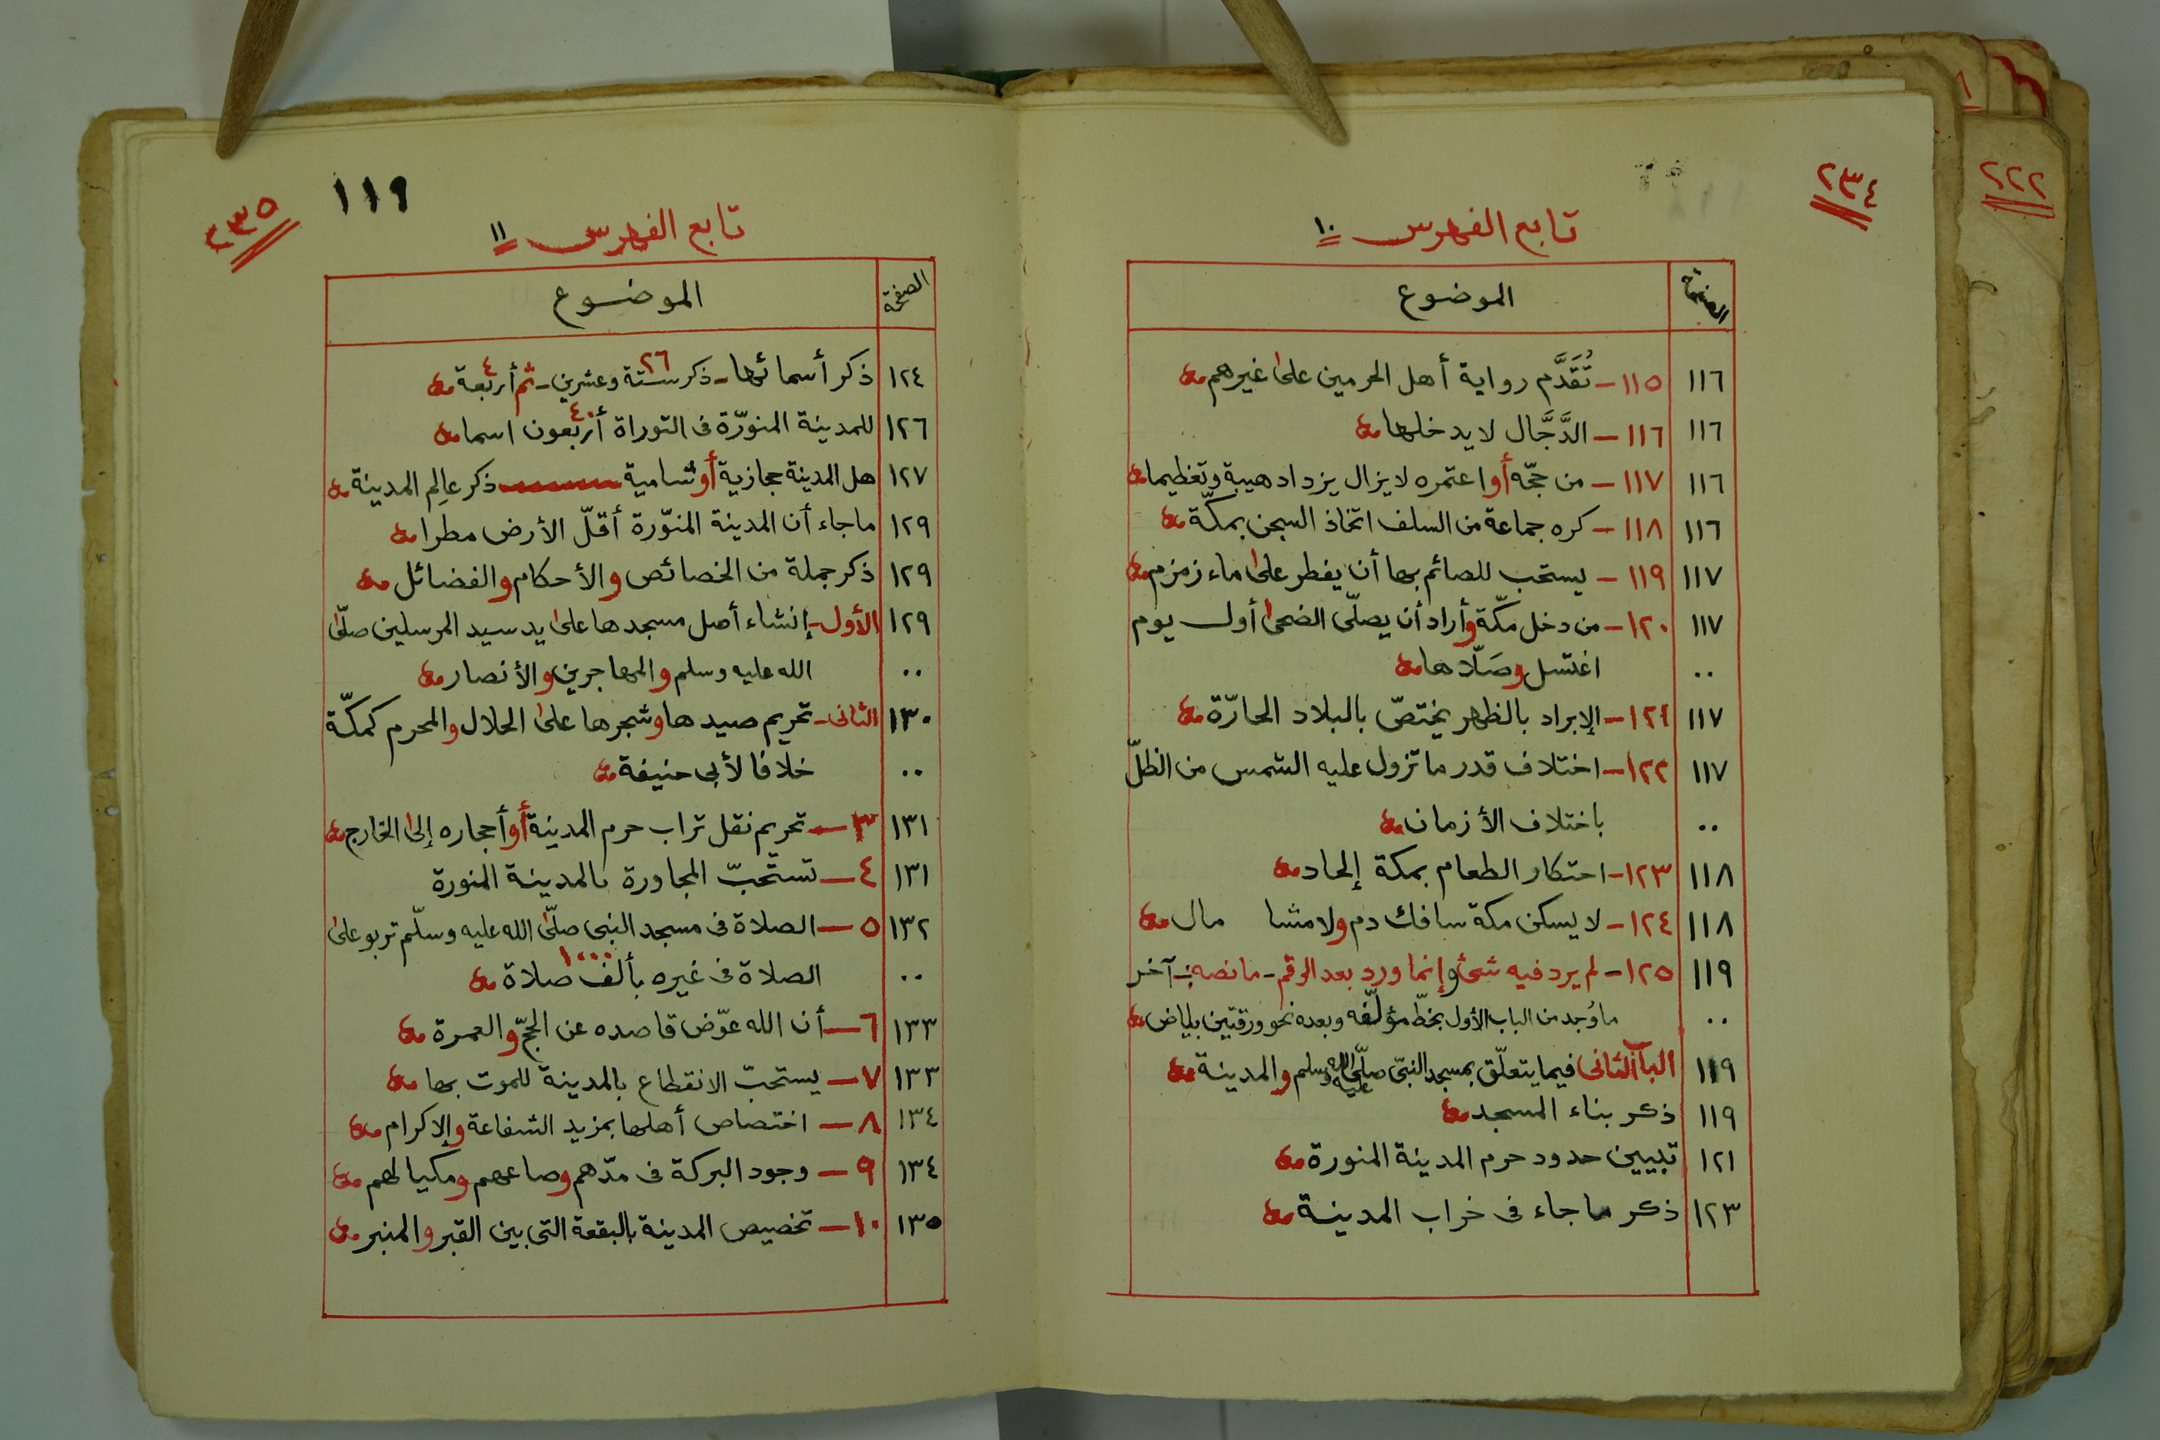 ٢٣٤
٢٢٢
تابع الفهرس ١٠
الصفحة الموضوع
١١٦ ١١٥ــ تُقَدَّم رواية أهل الحرمين على غيرهم
١١٦ ١١٦ــ الدَّجَّال لا يدخلها
١١٦ ١١٧ــ من حجّه أو اعتمره لا يزال يزداد هيبة وتعظيما
١١٦ ١١٨ــ كره جماعة من السلف اتخاذ السجن بمكّة
١١٧ ١١٩ــ يستحب للصائم بها أن يفطر على ماء زمزم
١١٧ ١٢٠ــ من دخل مكّة وأراد أن يصلّى الضحى أول يوم
.. اغتسل وصَلّاها
١١٧ ١٢١ــ الإبراد بالظهر يختصّ بالبلاد الحارّة
١١٧ ١٢٢ــ اختلاف قدر ما تزول عليه الشمس من الظلّ
.. باختلاف الأزمان
١١٨ ١٢٣ــ احتكار الطعام بمكة إلحاد
١١٨ ١٢٤ــ لا يسكن مكة سافك دم ولا مشا مال
١١٩ ١٢٥ــ لم يرد فيه شئ وإنما ورد بعد الرقم ــ ما نصه :ــ آخر
.. ما وُجد من الباب الأول بخطّ مؤلّفه وبعده نحو ورقتين بياض
١١٩ الباب الثانى فيما يتعلّق بمسجد النبىّ صلّى الله عليه وسلم والمدينة
١١٩ ذكر بناء المسجد
١٢١ تبيين حدود حرم المدينة المنورة
١٢٣ ذكر ما جاء فى خراب المدينة
٢٣٥
١١٩
تابع الفهرس ١١
الصفحة الموضوع
١٢٤ ذكر أسمائها ــ ذكر ستة وعشرين ٢٦ ــ ثم أربعة ٤
١٢٦ للمدينة المنوّرة فى التوراة أربعون ٤٠ اسما
١٢٧ هل المدينة حجازية أو شامية ذكر عالِم المدينة
١٢٩ ما جاء أن المدينة المنوّرة أقلّ الأرض مطرا
١٢٩ ذكر جملة من الخصائص والأحكام والفضائل
١٢٩ الأول ــ إنشاء أصل مسجدها على يد سيد المرسلين صلّى
.. الله عليه وسلم والمهاجرين والأنصار
١٣٠ الثانى ــ تحريم صيدها وشجرها على الحلال والمحرم كمكّة
.. خلافا لأبى حنيفة
١٣١ ٣ــ تحريم نقل تراب حرم المدينة أو أحجاره إلى الخارج
١٣١ ٤ــ تستحبّ المجاورة بالمدينة المنورة
١٣٢ ٥ــ الصلاة فى مسجد النبى صلّى الله عليه وسلّم تربو على
.. الصلاة فى غيره بألف ١٠٠٠ صلاة
١٣٣ ٦ــ أن الله عوّض قاصده عن الحجّ والعمرة
١٣٣ ٧ــ يستحبّ الانقطاع بالمدينة للموت بها
١٣٤ ٨ــ اختصاص أهلها بمزيد الشفاعة والإكرام
١٣٤ ٩ــ وجود البركة فى مدّهم وصاعهم ومكيالهم
١٣٥ ١٠ــ تخصيص المدينة بالبقعة التى بين القبر والمنبر